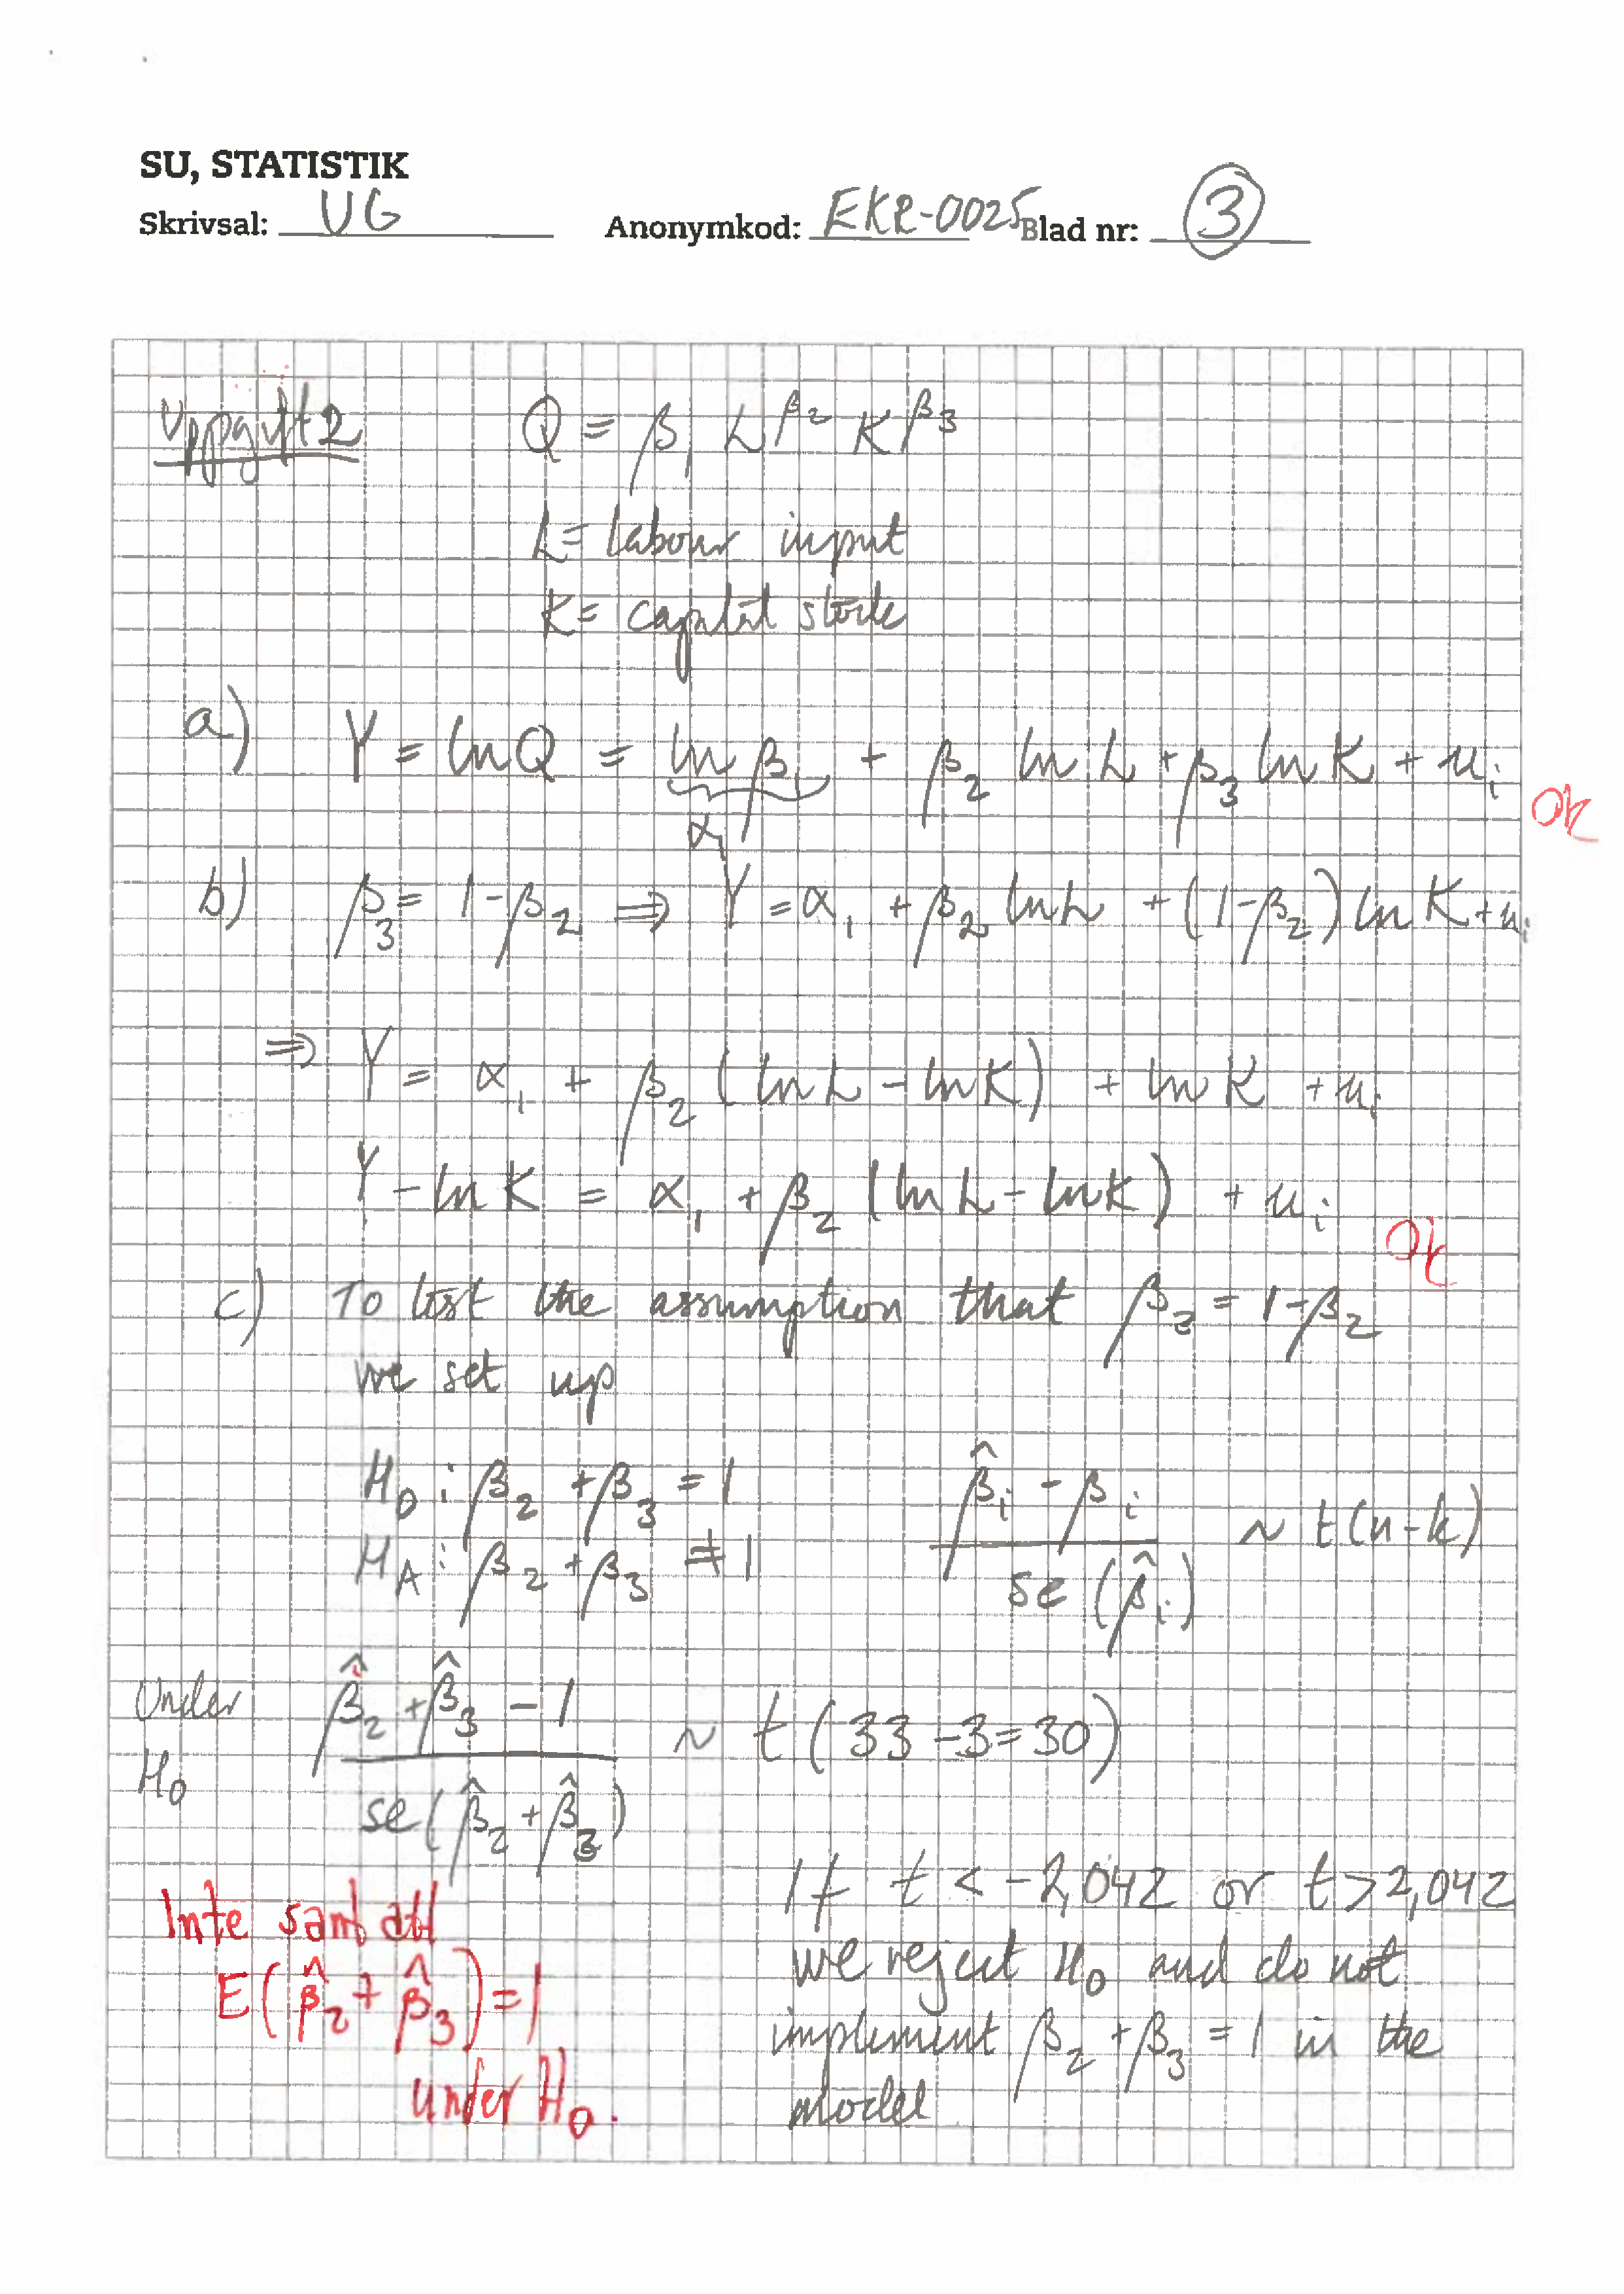 SU, STATISTIK
Skrivsal: UG Anonymkod: EKR-0025 Blad nr: 3
Uppgift 2 Q = β₁ L^β₂ K^β₃
L = labour input
K = capital stock
a) Y = ln Q = ln β₁ + β₂ ln L + β₃ ln K + uᵢ
OK
α₁
b) β₃ = 1-β₂ ⇒ Y = α₁ + β₂ ln L + (1-β₂) ln K + uᵢ
⇒ Y = α₁ + β₂ (ln L - ln K) + ln K + uᵢ
Y - ln K = α₁ + β₂ (ln L - ln K) + uᵢ
OK
c) To test the assumption that β₃ = 1-β₂
we set up
H₀: β₂ + β₃ = 1
H_A: β₂ + β₃ ≠ 1
(β̂ᵢ - βᵢ) / se(β̂ᵢ) ~ t(n-k)
Under H₀ (β̂₂ + β̂₃ - 1) / se(β̂₂ + β̂₃) ~ t(33-3=30)
If t < -2,042 or t > 2,042
we reject H₀ and do not
implement β₂ + β₃ = 1 in the
model
Inte samt att
E(β̂₂ + β̂₃) = 1
under H₀.